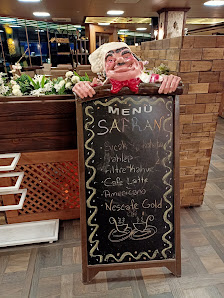 MENU
SAFRANC
Sıcak
Sahlep
Filtre Kahve
Cafe Latte
Americano
Nescafe Gold